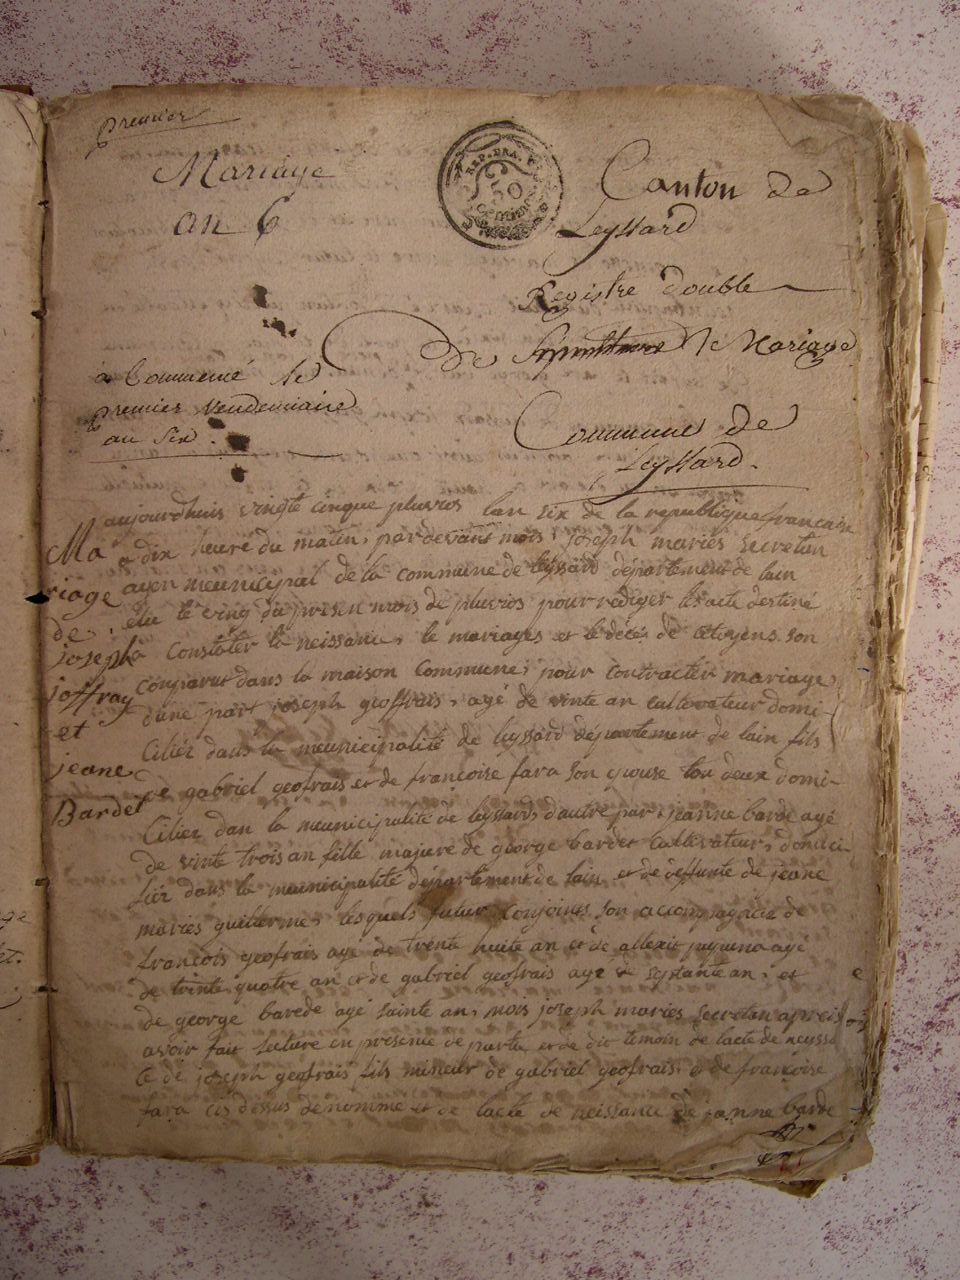 premier
Mariage
an 6
REP. FRA.
50
Centimes
Canton de
Leyssard
Registre double
de Mariage
a Commencé le
premier vendemiaire
an Six.
Commune de
Leyssard.
Ma
riage
de
joseph
joffray
et
jeane
Bardet
aujourdhuis vingte cinque pluvios lan six de la republique francaise
a dix heure du matin, pardevant mois, joseph maries secretan
ayen meunicipal de la commune de leyssard département de lain
élu le cinq du presen mois de pluvios pour rediger les acte destiné
a constater le neissance, le mariages et le décés de citoyens son
conparut dans la maison commune, pour contracter mariage
dune part joseph geoffrais, agé de vinte an cultevateur domi
cilier dans la meunicipalité de leyssard département de lain fils
de gabriel geofrais et de francoise fara son epouse tou deux domi-
cilier dan la meunicipalité de leyssard, dautre par, jeanne barde agé
de vinte trois an fille majure de george bardet cultevateur, domici-
lier dans la municipalité département de lain et de deffunte de jeane
maries guillerme, lesquels futur conjoints son accompagnéz de
francois geofrais agé de trente huite an et de agé
de trinte quatre an et de gabriel geofrais agé de septante an, et
de george barede agé sainte an, mois joseph maries secretan apreis
avoir fait lecture en présence de partie et de dit temoin de lacte de neyssa
ce de joseph geofrais fils mineur de gabriel geofrais, e de francoise
fara cis dessus dénommé et de lacte de neissance de janne barde